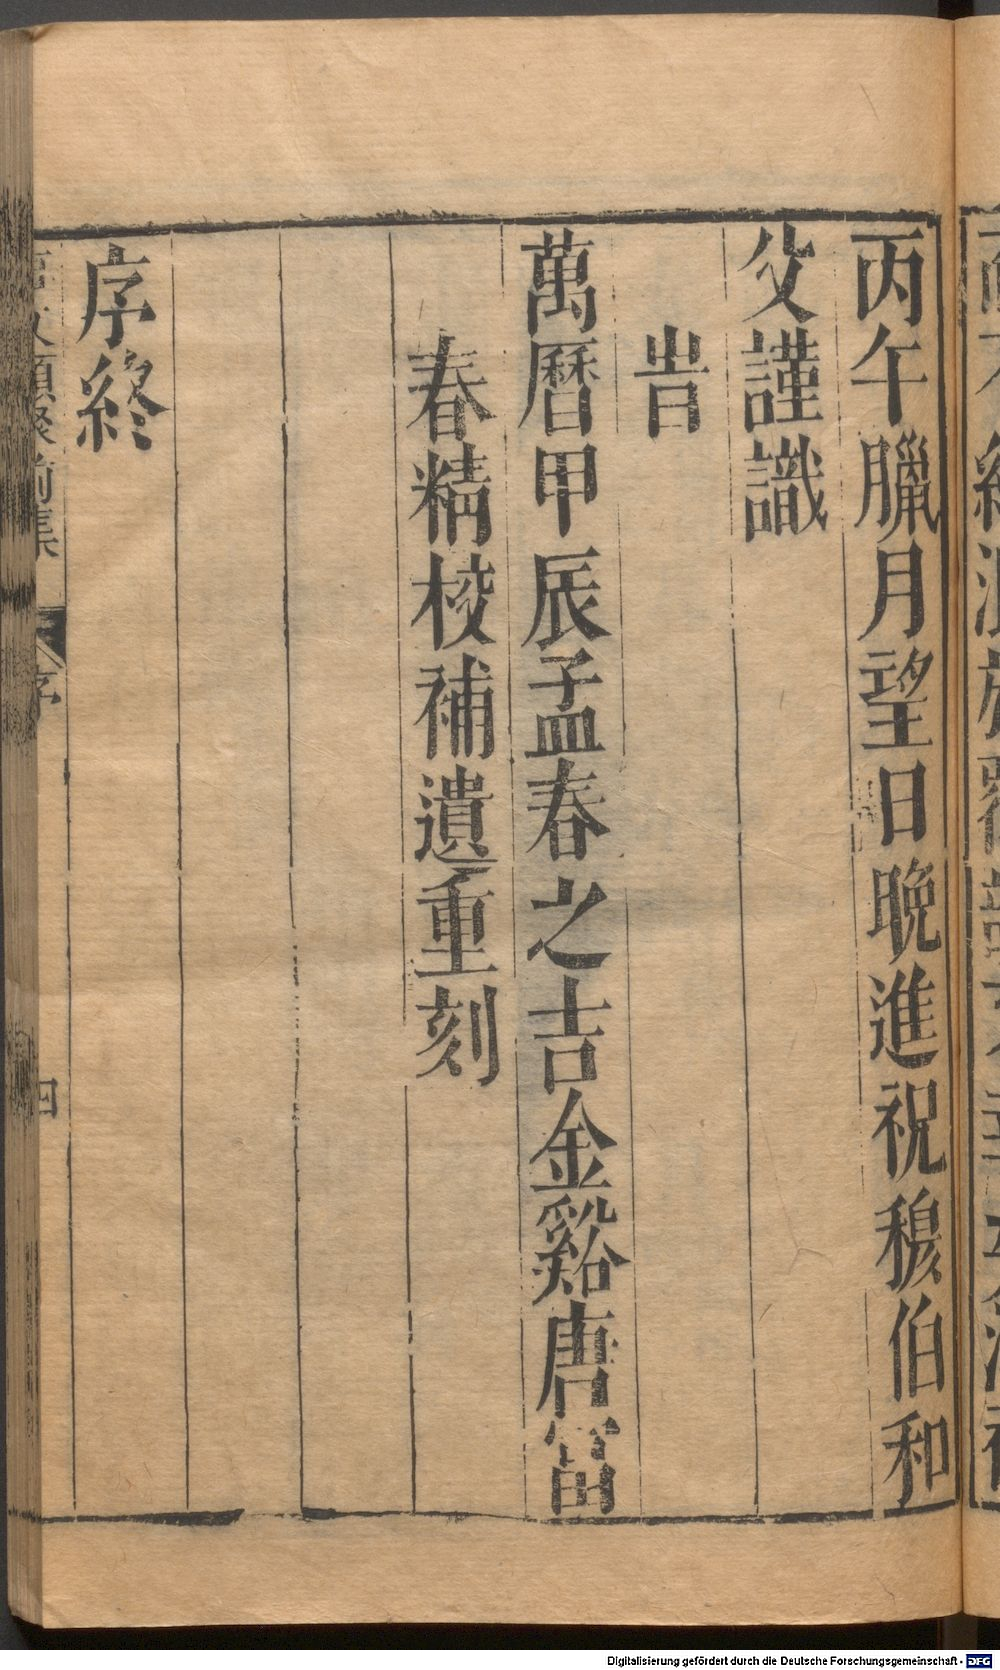 丙午臘月望日晚進祝穆伯和
父謹識
旹
萬曆甲辰孟春之吉金谿唐富
春精校補遺重刻
序終
事文類聚前集 序 四
Digitalisierung gefördert durch die Deutsche Forschungsgemeinschaft - DFG